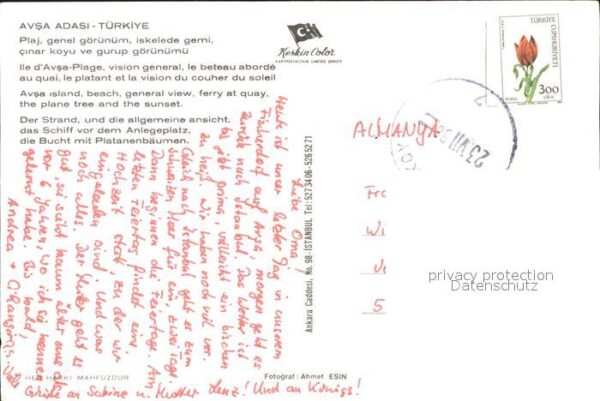 AVŞA ADASI - TÜRKİYE
Plaj, genel görünüm, iskelede gemi,
çınar koyu ve gurup görünümü
Ile d'Avşa-Plage, vision general, le beteau abordé
au quai, le platant et la vision du couher du soleil
Avşa island, beach, general view, ferry at quay,
the plane tree and the sunset.
Der Strand, und die allgemeine ansicht,
das Schiff vor dem Anlegeplatz,
die Bucht mit Platanenbäumen.
Keskin Color
KARTPOSTALCILIK LIMITED ŞİRKETİ
Ankara Caddesi, No. 98 - İSTANBUL Tel: 5273406-5265271
TÜRKİYE
CUMHURİYETİ
300
LİRA
23 VII
ALMANYA
Fre
Wi
5
privacy protection
Datenschutz
Liebe Oma!
Heute ist unser letzter Tag in unserem
Fischerdorf auf Avşa, morgen geht es
zurück nach Istanbul. Das Wetter ist
prima, vielleicht ein bischen
zu heiß. Wir haben noch viel vor.
Gleich nach Istanbul geht es zum
schwarzen Meer für ein, zwei Tage
Dann beginnen die Feiertage. Am
letzten Feiertag findet eine
Hochzeit statt, zu der wir
eingeladen sind und was
noch alles. Der geht es
gut sie sieht kaum älter aus als
vor 6 Jahren, wo ich sie kennen
gelernt habe. Bis bald!
Andrea +
Grüße an Sabine u. Mutter Lenz! Und an Königs!
HER HAKKI MAHFUZDUR
Fotoğraf: Ahmet ESİN